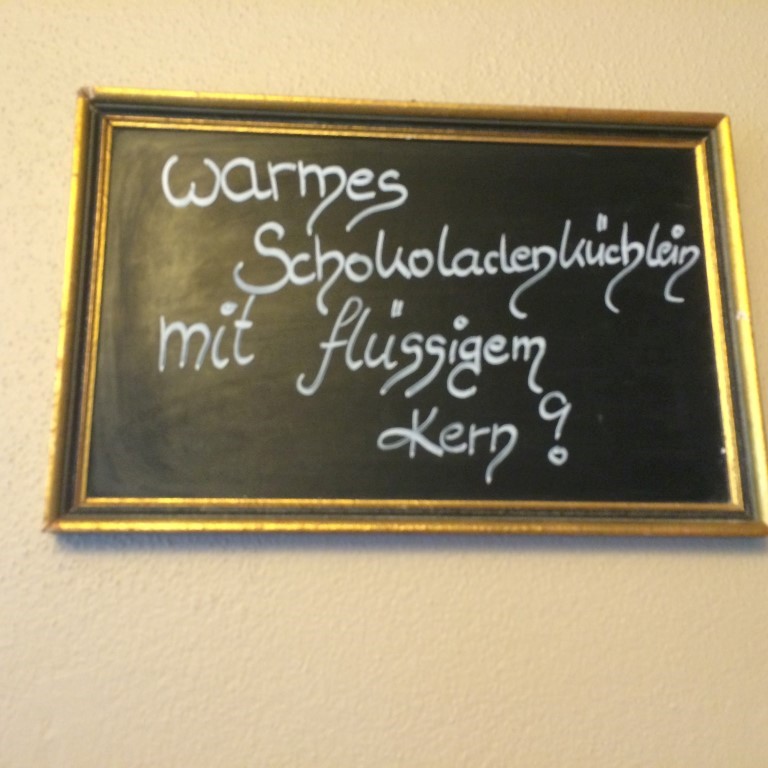 warmes
Schokoladenküchlein
mit flüssigem
Kern!